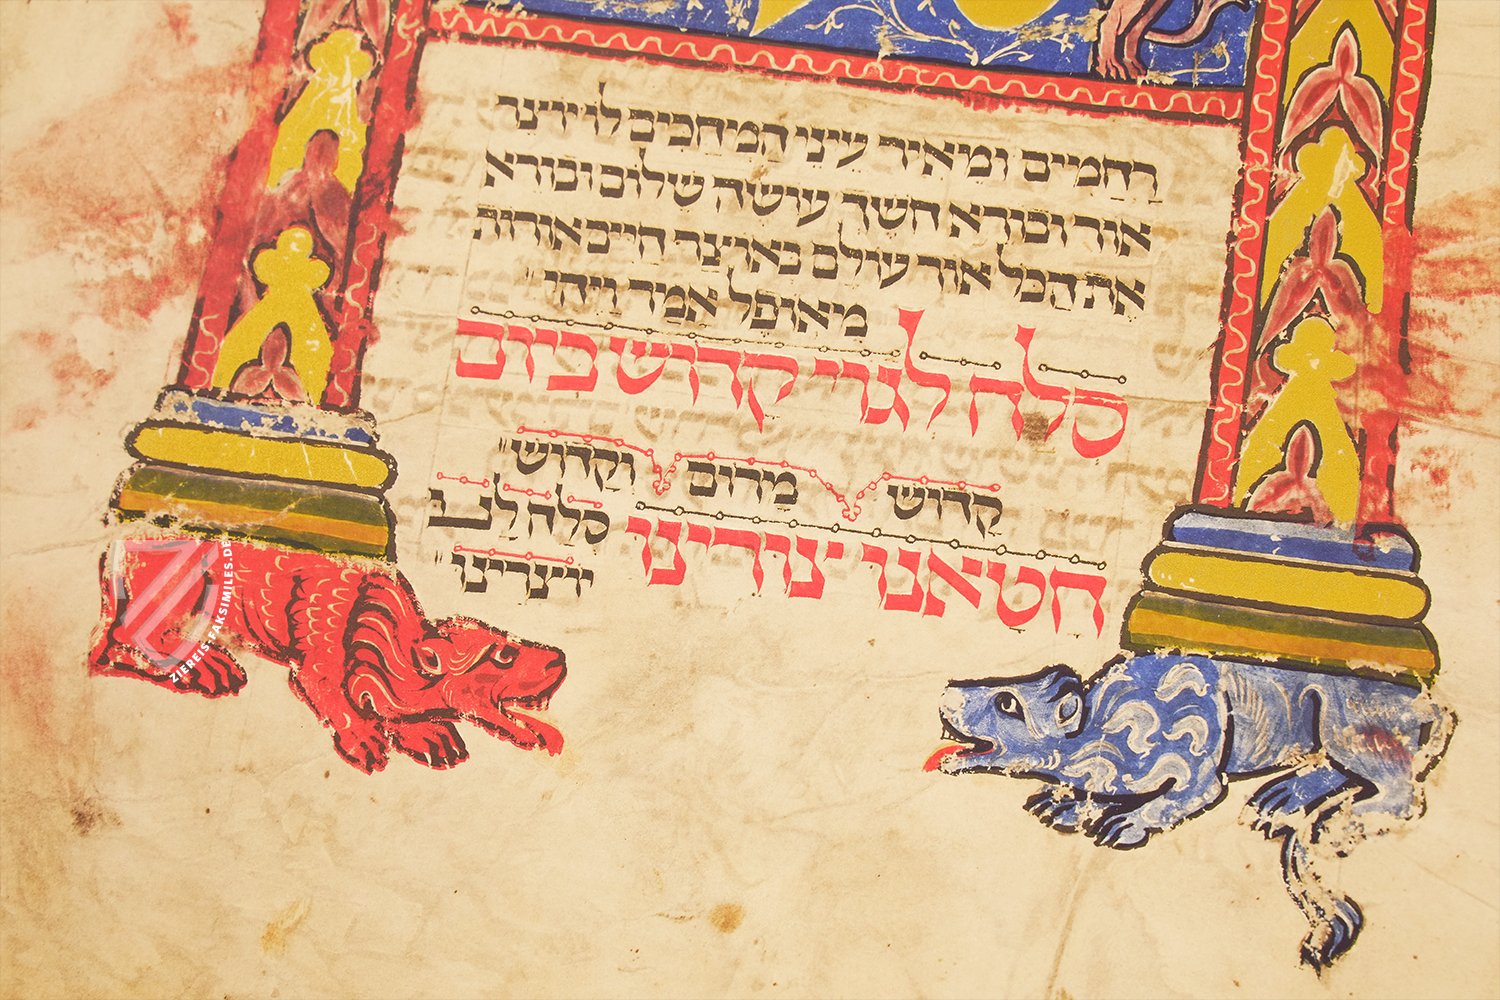 רחמים ומאיר עיני המחכים לו יוצר
אור ובורא חשך עושה שלום ובורא
את הכל אור עולם באוצר חיים אורות
מאופל אמר ויהי
סלח לגוי קדוש ביום
קדוש מרום וקדוש
חטאנו צורינו סלח לנו
יוצרינו
ZIEREIS-FAKSIMILES.DE